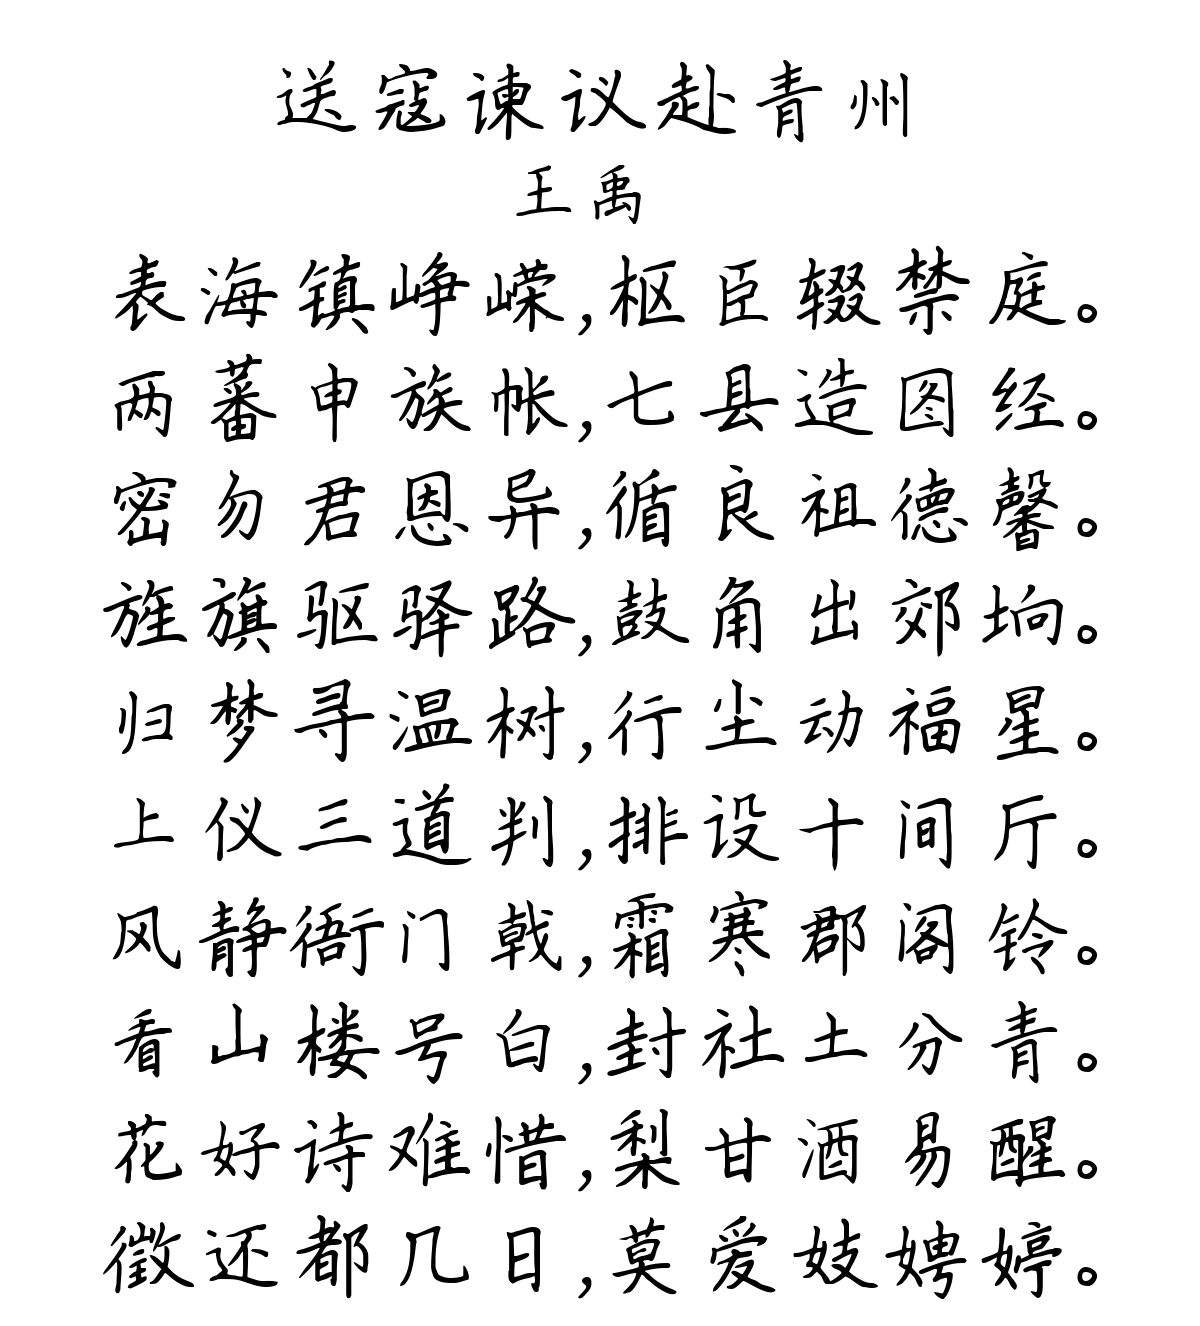 送寇谏议赴青州
王禹
表海镇峥嵘,枢臣辍禁庭。
两蕃申族帐,七县造图经。
密勿君恩异,循良祖德馨。
旌旗驱驿路,鼓角出郊坰。
归梦寻温树,行尘动福星。
上仪三道判,排设十间厅。
风静衙门戟,霜寒郡阁铃。
看山楼号白,封社土分青。
花好诗难惜,梨甘酒易醒。
徵还都几日,莫爱妓娉婷。